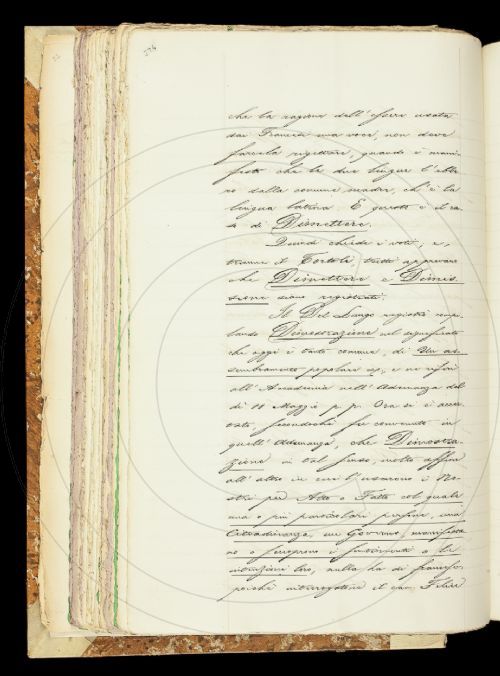 che la ragione dell' essere usata
dai Francesi una voce, non deve
farcela rigettare, quando è mani-
festo che le due lingue l' ebbe-
ro dalla comune madre, ch' è la
lingua latina. E questo è il ca-
so di Dimettere.
Quindi chiede i voti, e,
tranne il Tortoli, tutti approvano
che Dimettere e Dimis-
sione siano registrati.
Il Del Lungo registrò compi-
lando Dimostrazione nel significato
che oggi è tanto comune, di Un as-
sembramento popolare ec, e ne riferì
all' Accademia nell' Adunanza del
dì 11 Maggio p. p. Ora si è accer-
tato, secondochè fu convenuto in
quell' Adunanza, che Dimostra-
zione in tal senso, molto affine
all' altro in cui l' usarono i No-
stri per Atto o Fatto col quale
una o più particolari persone, una
Cittadinanza, un Governo, manifesta-
no o i sentimenti o le
intenzioni loro, nulla ha di francese,
poichè interrogatone il cav.